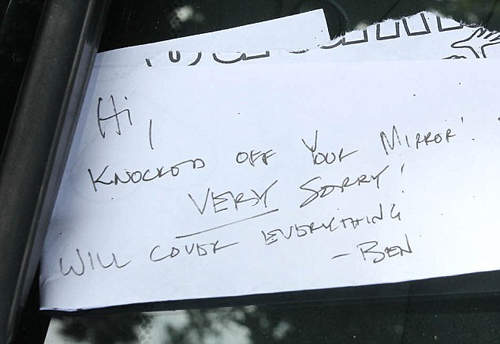 Hi,
KNOCKED OFF YOUR MIRROR!
VERY SORRY!
WILL COVER EVERYTHING
- BEN